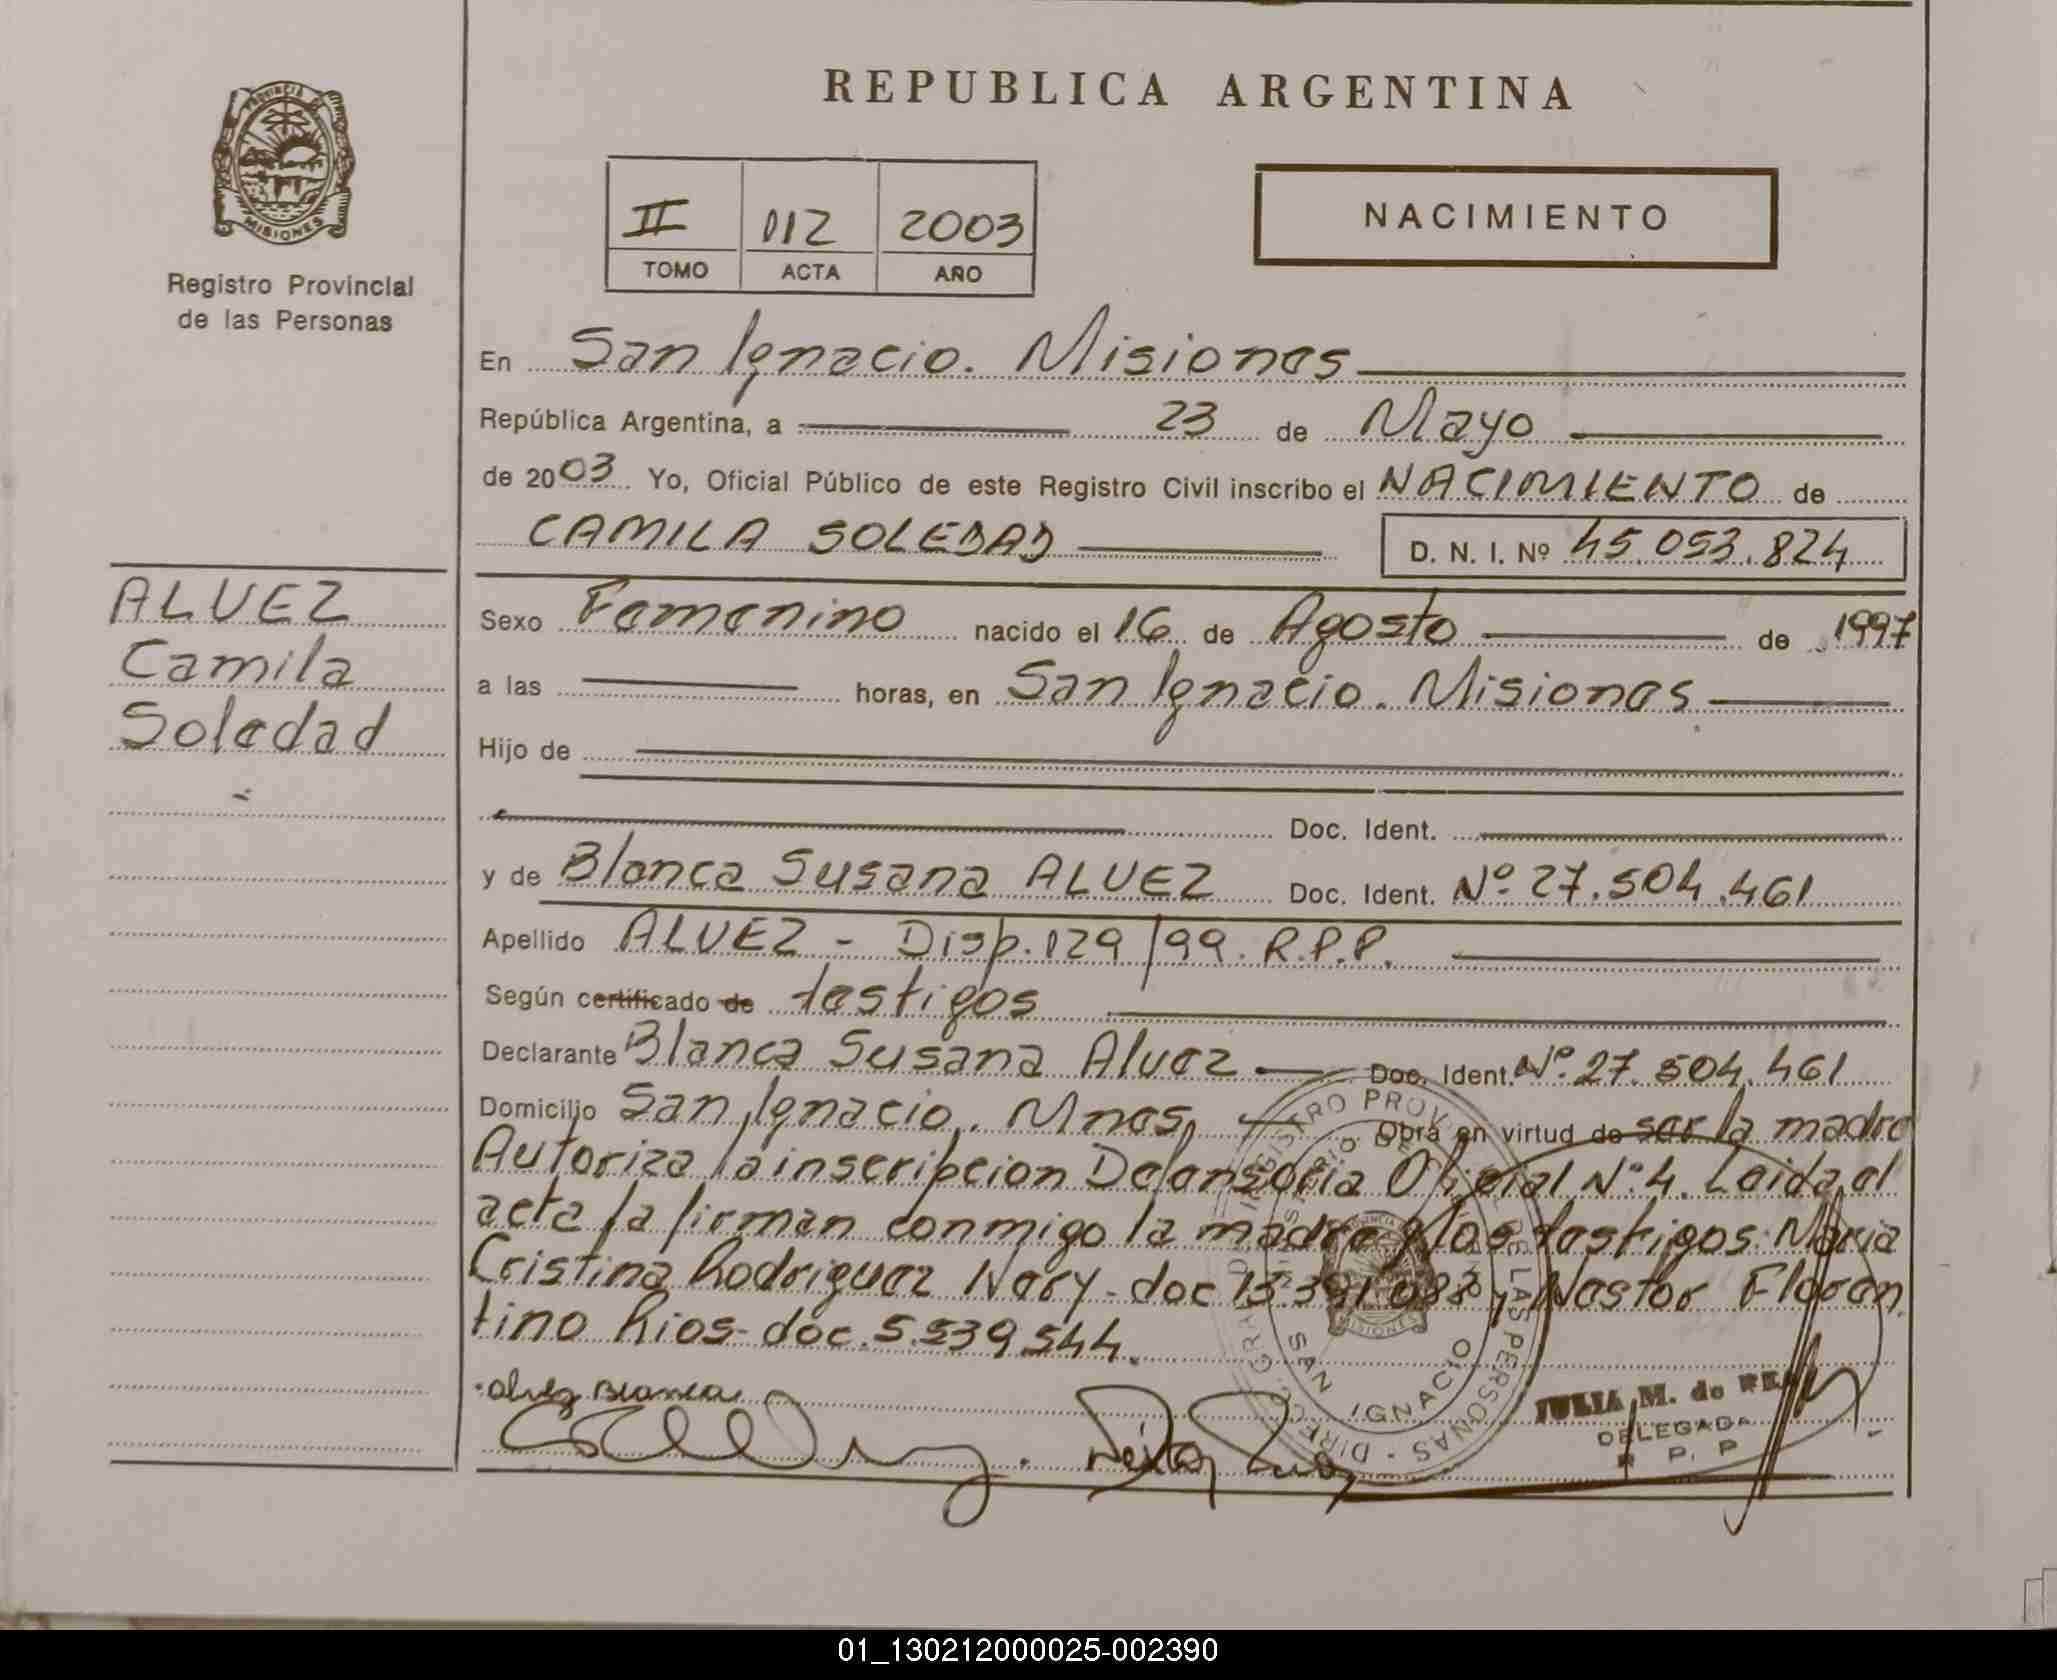 REPUBLICA ARGENTINA
PROVINCIA DE
MISIONES
Registro Provincial
de las Personas
II 112 2003
TOMO ACTA AÑO
NACIMIENTO
En San Ignacio. Misiones
República Argentina, a 23 de Mayo
de 2003 Yo, Oficial Público de este Registro Civil inscribo el NACIMIENTO de
CAMILA SOLEDAD D. N. I. Nº 45.053.824
ALVEZ
Camila
Soledad
Sexo Femenino nacido el 16 de Agosto de 1997
a las horas, en San Ignacio. Misiones
Hijo de
Doc. Ident.
y de Blanca Susana ALVEZ Doc. Ident. Nº. 27.504.461
Apellido ALVEZ - Disp. 129/99. R.P.P.
Según certificado de testigos
Declarante Blanca Susana Alvez Doc. Ident. Nº. 27.504.461
Domicilio San Ignacio. Mnes, Obra en virtud de ser la madre
Autoriza la inscripcion Defensoria Oficial Nº 4. Leida el
acta la firman conmigo la madre y los testigos: Maria
Cristina Rodriguez Nery - doc 13.391.088 y Nestor Floren
tino Rios - doc. 5.539.544.
Alvez Blanca
JULIA M. de
DELEGADA
R. P. P
DIREC. GRAL. DEL REGISTRO PROVINCIAL DE LAS PERSONAS
SAN IGNACIO
MISIONES
01_130212000025-002390